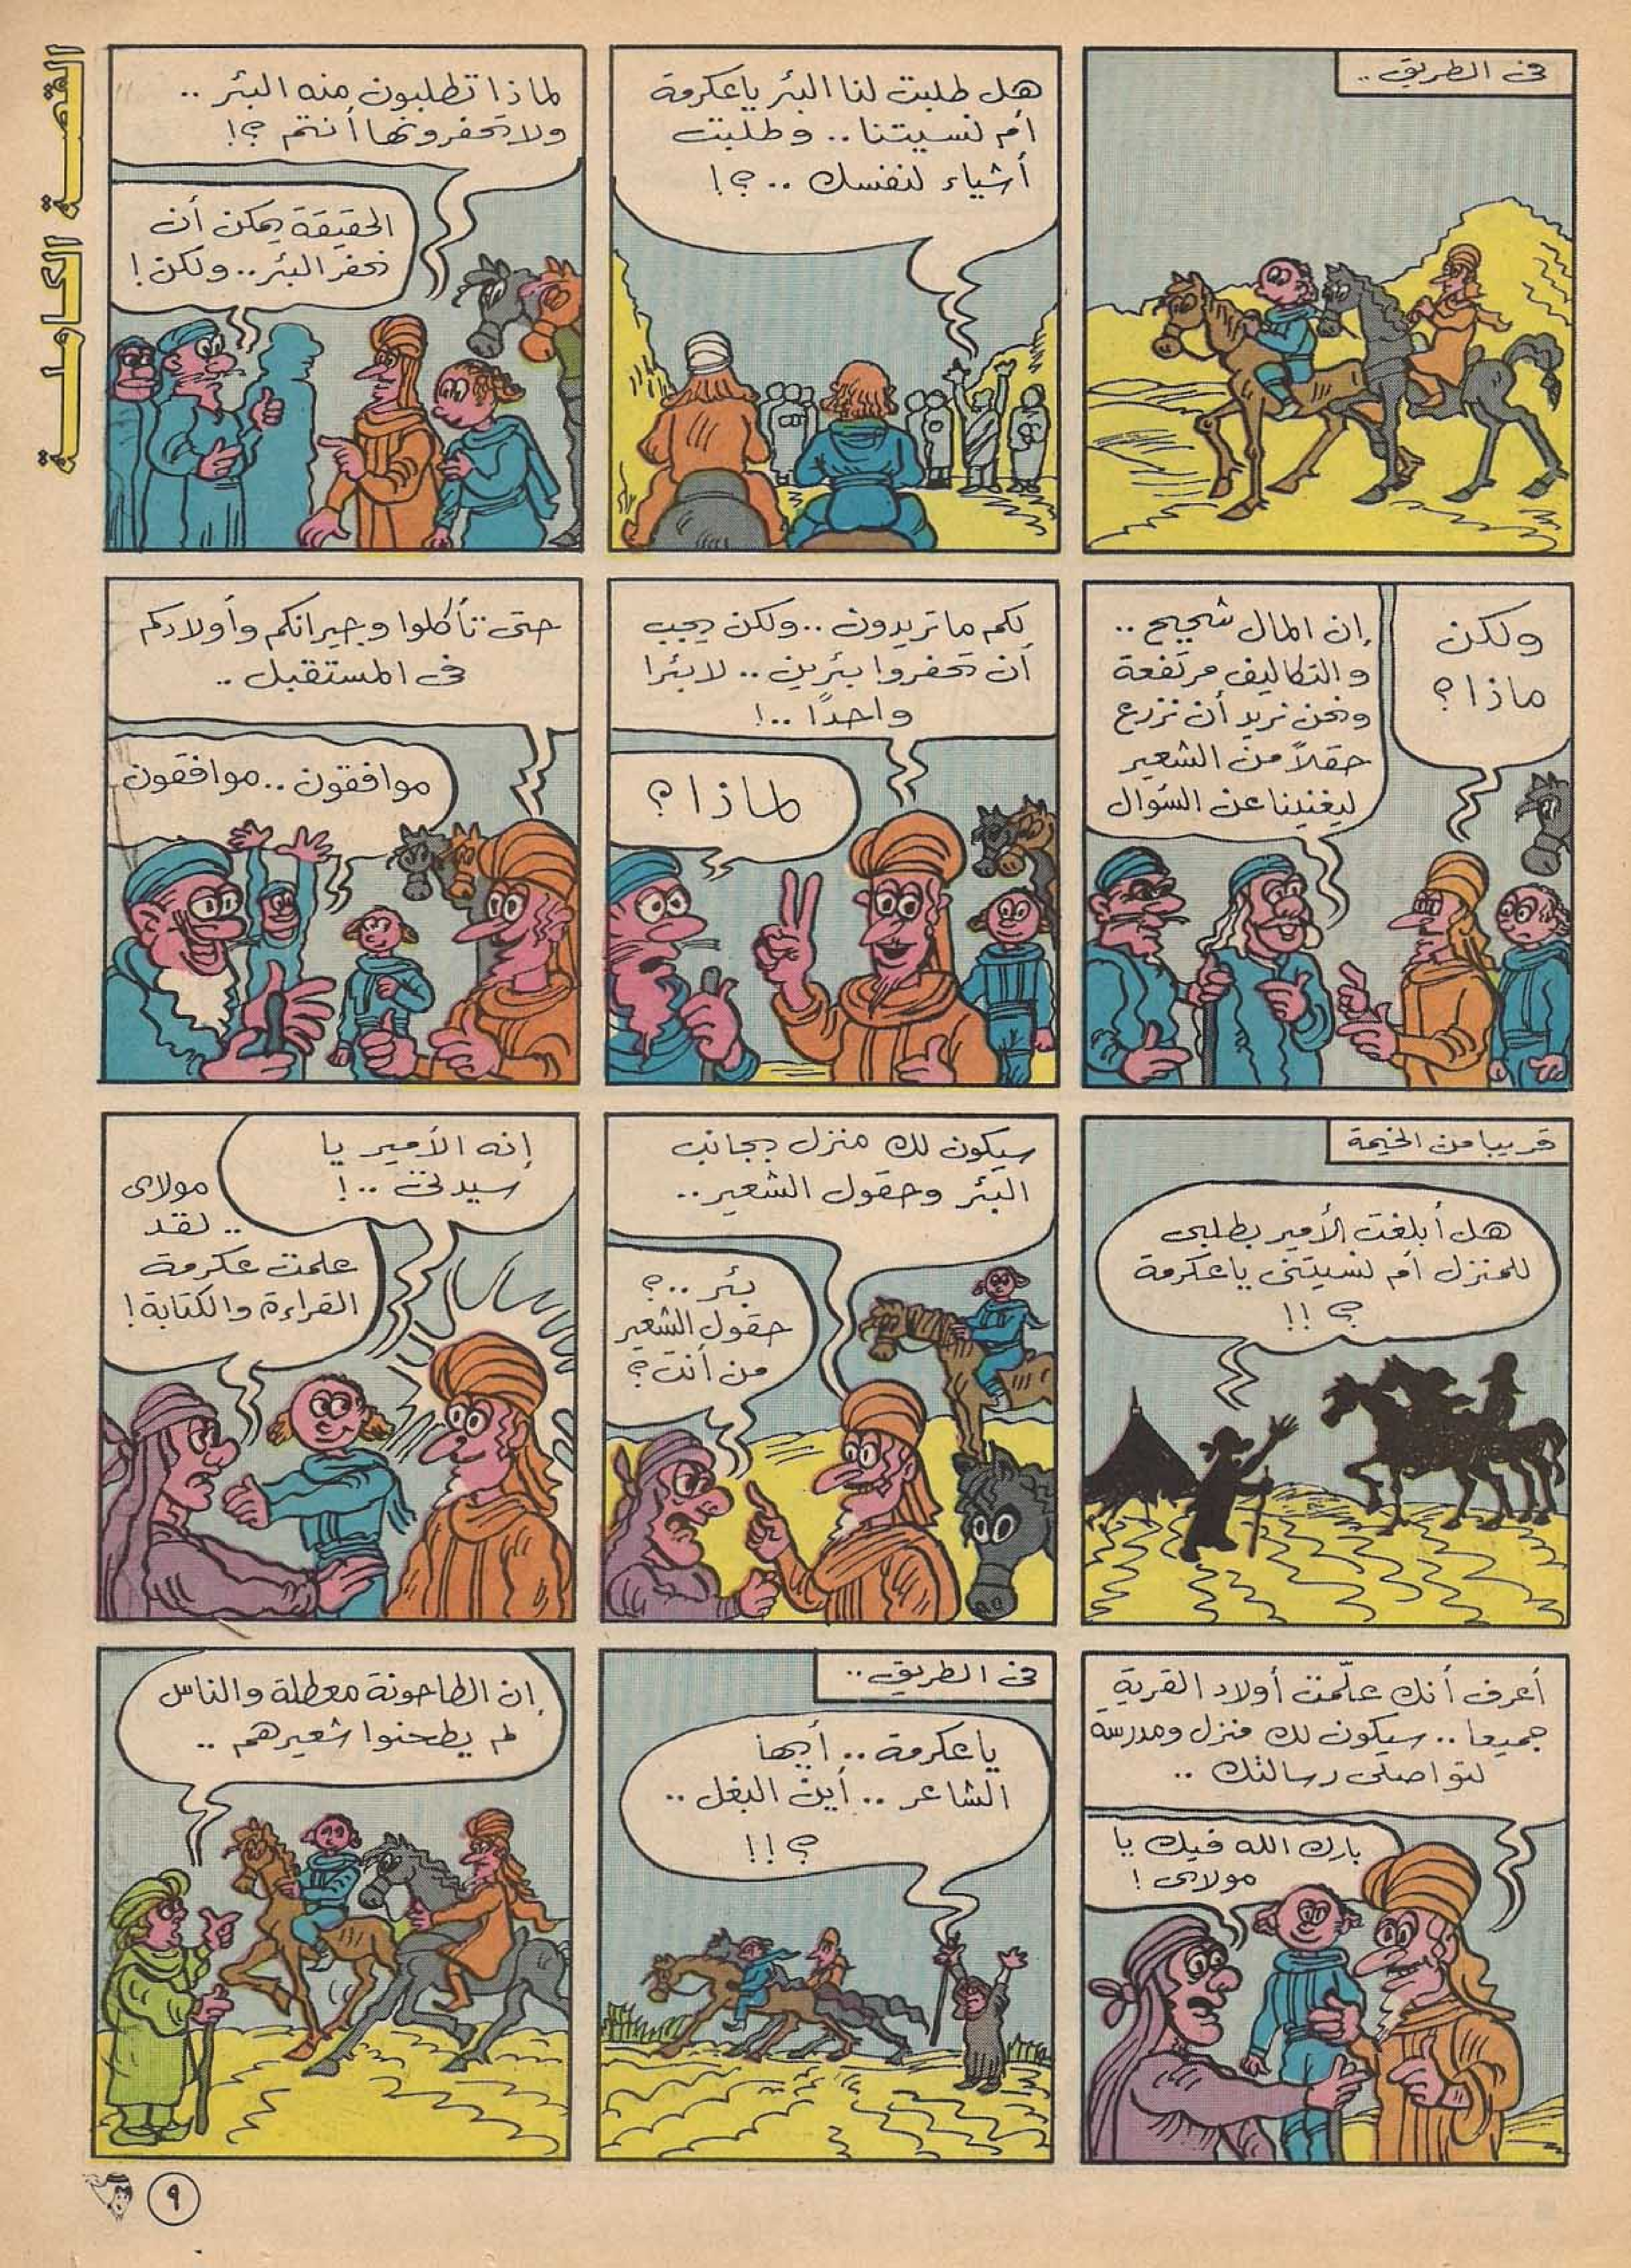 القصة الكاملة
فى الطريق ..
هل طلبت لنا البئر ياعكرمة
أم نسيتنا .. وطلبت
أشياء لنفسك .. ؟!
لماذا تطلبون منه البئر ..
ولا تحفرونها أنتم ؟!
الحقيقة يمكن أن
نحفر البئر .. ولكن !
ولكن
ماذا ؟
إن المال شحيح ..
والتكاليف مرتفعة
ونحن نريد أن نزرع
حقلاً من الشعير
ليغنينا عن السؤال
لكم ما تريدون .. ولكن يجب
أن تحفروا بئرين .. لا بئرا
واحدًا .. !
لماذا ؟
حتى تأكلوا وجيرانكم وأولادكم
فى المستقبل ..
موافقون .. موافقون
قريبا من الخيمة
هل أبلغت الأمير بطلبى
للمنزل أم نسيتنى ياعكرمة
؟ !!
سيكون لك منزل بجانب
البئر وحقول الشعير ..
بئر .. ؟
حقول الشعير
من أنت ؟
إنه الأمير يا
سيدتى .. !
مولاى
.. لقد
علمت عكرمة
القراءة والكتابة !
أعرف أنك علّمت أولاد القرية
جميعا .. سيكون لك منزل ومدرسة
لتواصلى رسالتك ..
بارك الله فيك يا
مولاى !
فى الطريق ..
ياعكرمة .. أيها
الشاعر .. أين البغل ..
؟ !!
إن الطاحونة معطلة والناس
لم يطحنوا شعيرهم ..
٩